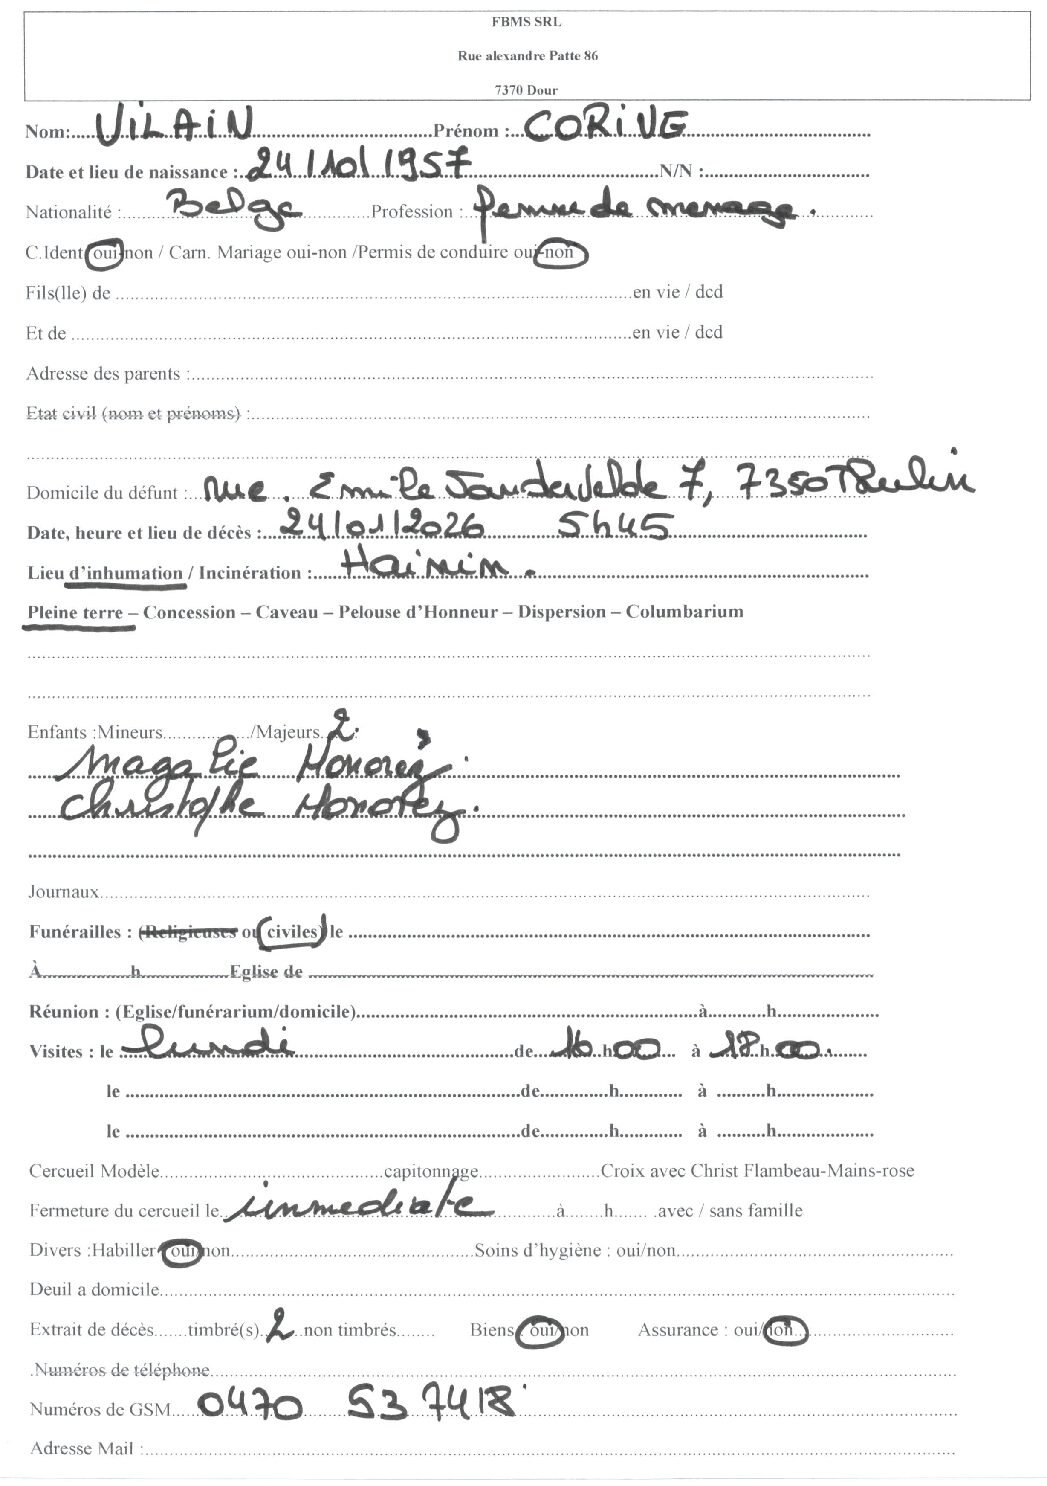 FBMS SRL
Rue alexandre Patte 86
7370 Dour
Nom:.....VILAIN.....Prénom :..CORINE.....
Date et lieu de naissance :..24/10/1957.....N/N :.....
Nationalité :.....Belge.....Profession :..femme de menage.
C.Ident oui-non / Carn. Mariage oui-non /Permis de conduire oui-non
Fils(lle) de .....en vie / dcd
Et de .....en vie / dcd
Adresse des parents :.....
Etat civil (nom et prénoms) :.....
Domicile du défunt :..rue. Emile Vandervelde 7, 7350 Thulin
Date, heure et lieu de décès :..24/01/2026 5h45.....
Lieu d'inhumation / Incinération :.....Hainin.
Pleine terre – Concession – Caveau – Pelouse d'Honneur – Dispersion – Columbarium
Enfants :Mineurs...../Majeurs..2.
Magalie Honorez.
Christophe Honorez.
Journaux.....
Funérailles : (Religieuses ou civiles) le .....
À.....h.....Eglise de .....
Réunion : (Eglise/funérarium/domicile).....à.....h.....
Visites : le lundi.....de..16..h00... à 18h.00.
le .....de.....h..... à .....h.....
le .....de.....h..... à .....h.....
Cercueil Modèle.....capitonnage.....Croix avec Christ Flambeau-Mains-rose
Fermeture du cercueil le..immediate.....à.....h..... .avec / sans famille
Divers :Habiller oui/non.....Soins d'hygiène : oui/non.....
Deuil a domicile.....
Extrait de décès.....timbré(s)..2..non timbrés..... Biens : oui/non Assurance : oui/non.....
.Numéros de téléphone.....
Numéros de GSM....0470 53 74 18
Adresse Mail :.....